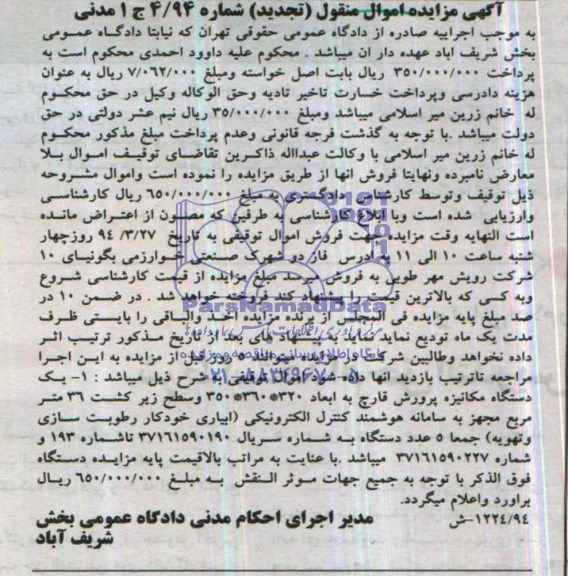 آگهی مزایده اموال منقول (تجدید) شماره ۴/۹۴ ج ۱ مدنی
به موجب اجراییه صادره از دادگاه عمومی حقوقی تهران که نیابتا دادگاه عمومی
بخش شریف اباد عهده دار ان میباشد . محکوم علیه داوود احمدی محکوم است به
پرداخت ۳۵۰/۰۰۰/۰۰۰ ریال بابت اصل خواسته ومبلغ ۷/۰۶۲/۰۰۰ ریال به عنوان
هزینه دادرسی وپرداخت خسارت تاخیر تادیه وحق الوکاله وکیل در حق محکوم
له خانم زرین میر اسلامی میباشد ومبلغ ۳۵/۰۰۰/۰۰۰ ریال نیم عشر دولتی در حق
دولت میباشد .با توجه به گذشت فرجه قانونی وعدم پرداخت مبلغ مذکور محکوم
له خانم زرین میر اسلامی با وکالت عبداله ذاکرین تقاضای توقیف اموال بلا
معارض نامبرده ونهایتا فروش انها از طریق مزایده را نموده است واموال مشروحه
ذیل توقیف وتوسط کارشناس دادگستری به مبلغ ۶۵۰/۰۰۰/۰۰۰ ریال کارشناسی
وارزیابی شده است وبا ابلاغ کارشناسی به طرفین که مصون از اعتراض مانده
است النهایه وقت مزایده جهت فروش اموال توقیفی به تاریخ ۹۴ /۳/۲۷ روزچهار
شنبه ساعت ۱۰ الی ۱۱ به ادرس فاز دو شهرک صنعتی خوارزمی بگونیای ۱۰
شرکت رویش مهر طوبی به فروش میرسد مبلغ مزایده از قیمت کارشناسی شروع
وبه کسی که بالاترین قیمت را پیشنهاد کند فروخته خواهد شد . در ضمن ۱۰ در
صد مبلغ پایه مزایده فی المجلس از برنده مزایده اخذ والباقی را بایستی ظرف
مدت یک ماه تودیع نماید نماید پیشنهاد های بعد از تاریخ مذکور ترتیب اثر
داده نخواهد وطالبین شرکت در مزایده میتوانند روز قبل از مزایده به این اجرا
مراجعه تاترتیب بازدید انها داده شود اموال توقیفی به شرح ذیل میباشد : ۱- یک
دستگاه مکانیزه پرورش قارچ به ابعاد ۳۲۰*۳۶۰*۳۵۰ وسطح زیر کشت ۳۶ متر
مربع مجهز به سامانه هوشمند کنترل الکترونیکی (ابیاری خودکار رطوبت سازی
وتهویه) جمعا ۵ عدد دستگاه به شماره سریال ۳۷۱۶۱۵۹۰۱۹۰ تاشماره ۱۹۳ و
شماره ۳۷۱۶۱۵۹۰۲۲۷ میباشد .با عنایت به مراتب بالاقیمت پایه مزایده دستگاه
فوق الذکر با توجه به جمیع جهات موثر النقش به مبلغ ۶۵۰/۰۰۰/۰۰۰ ریال
براورد واعلام میگردد.
۱۲۲۴/۹۴-ش
مدیر اجرای احکام مدنی دادگاه عمومی بخش
شریف آباد
ParsNamadData
پایگاه اطلاع رسانی مناقصه و مزایده
۰۲۱-۸۸۳۴۹۶۷۰-۵